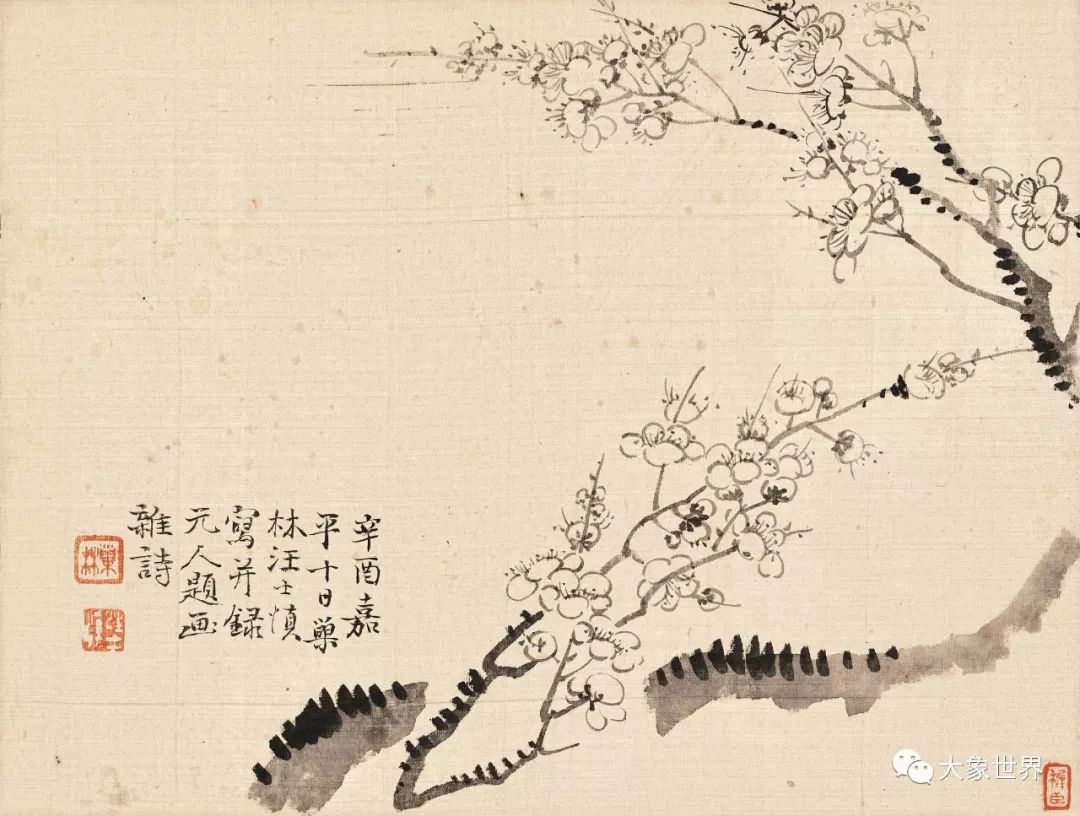 辛酉嘉
平十日巢
林汪士慎
寫并録
元人題画
雜詩
巢林
大象世界